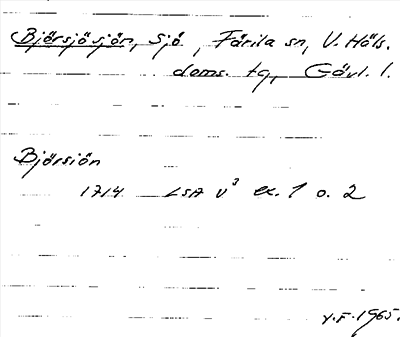 Björsjösjön, sjö, Färila sn, V. Häls.
doms. tg, Gävl. l.
Björsiön
1714 LSA V³ ex. 1 o. 2
V.F. 1965.